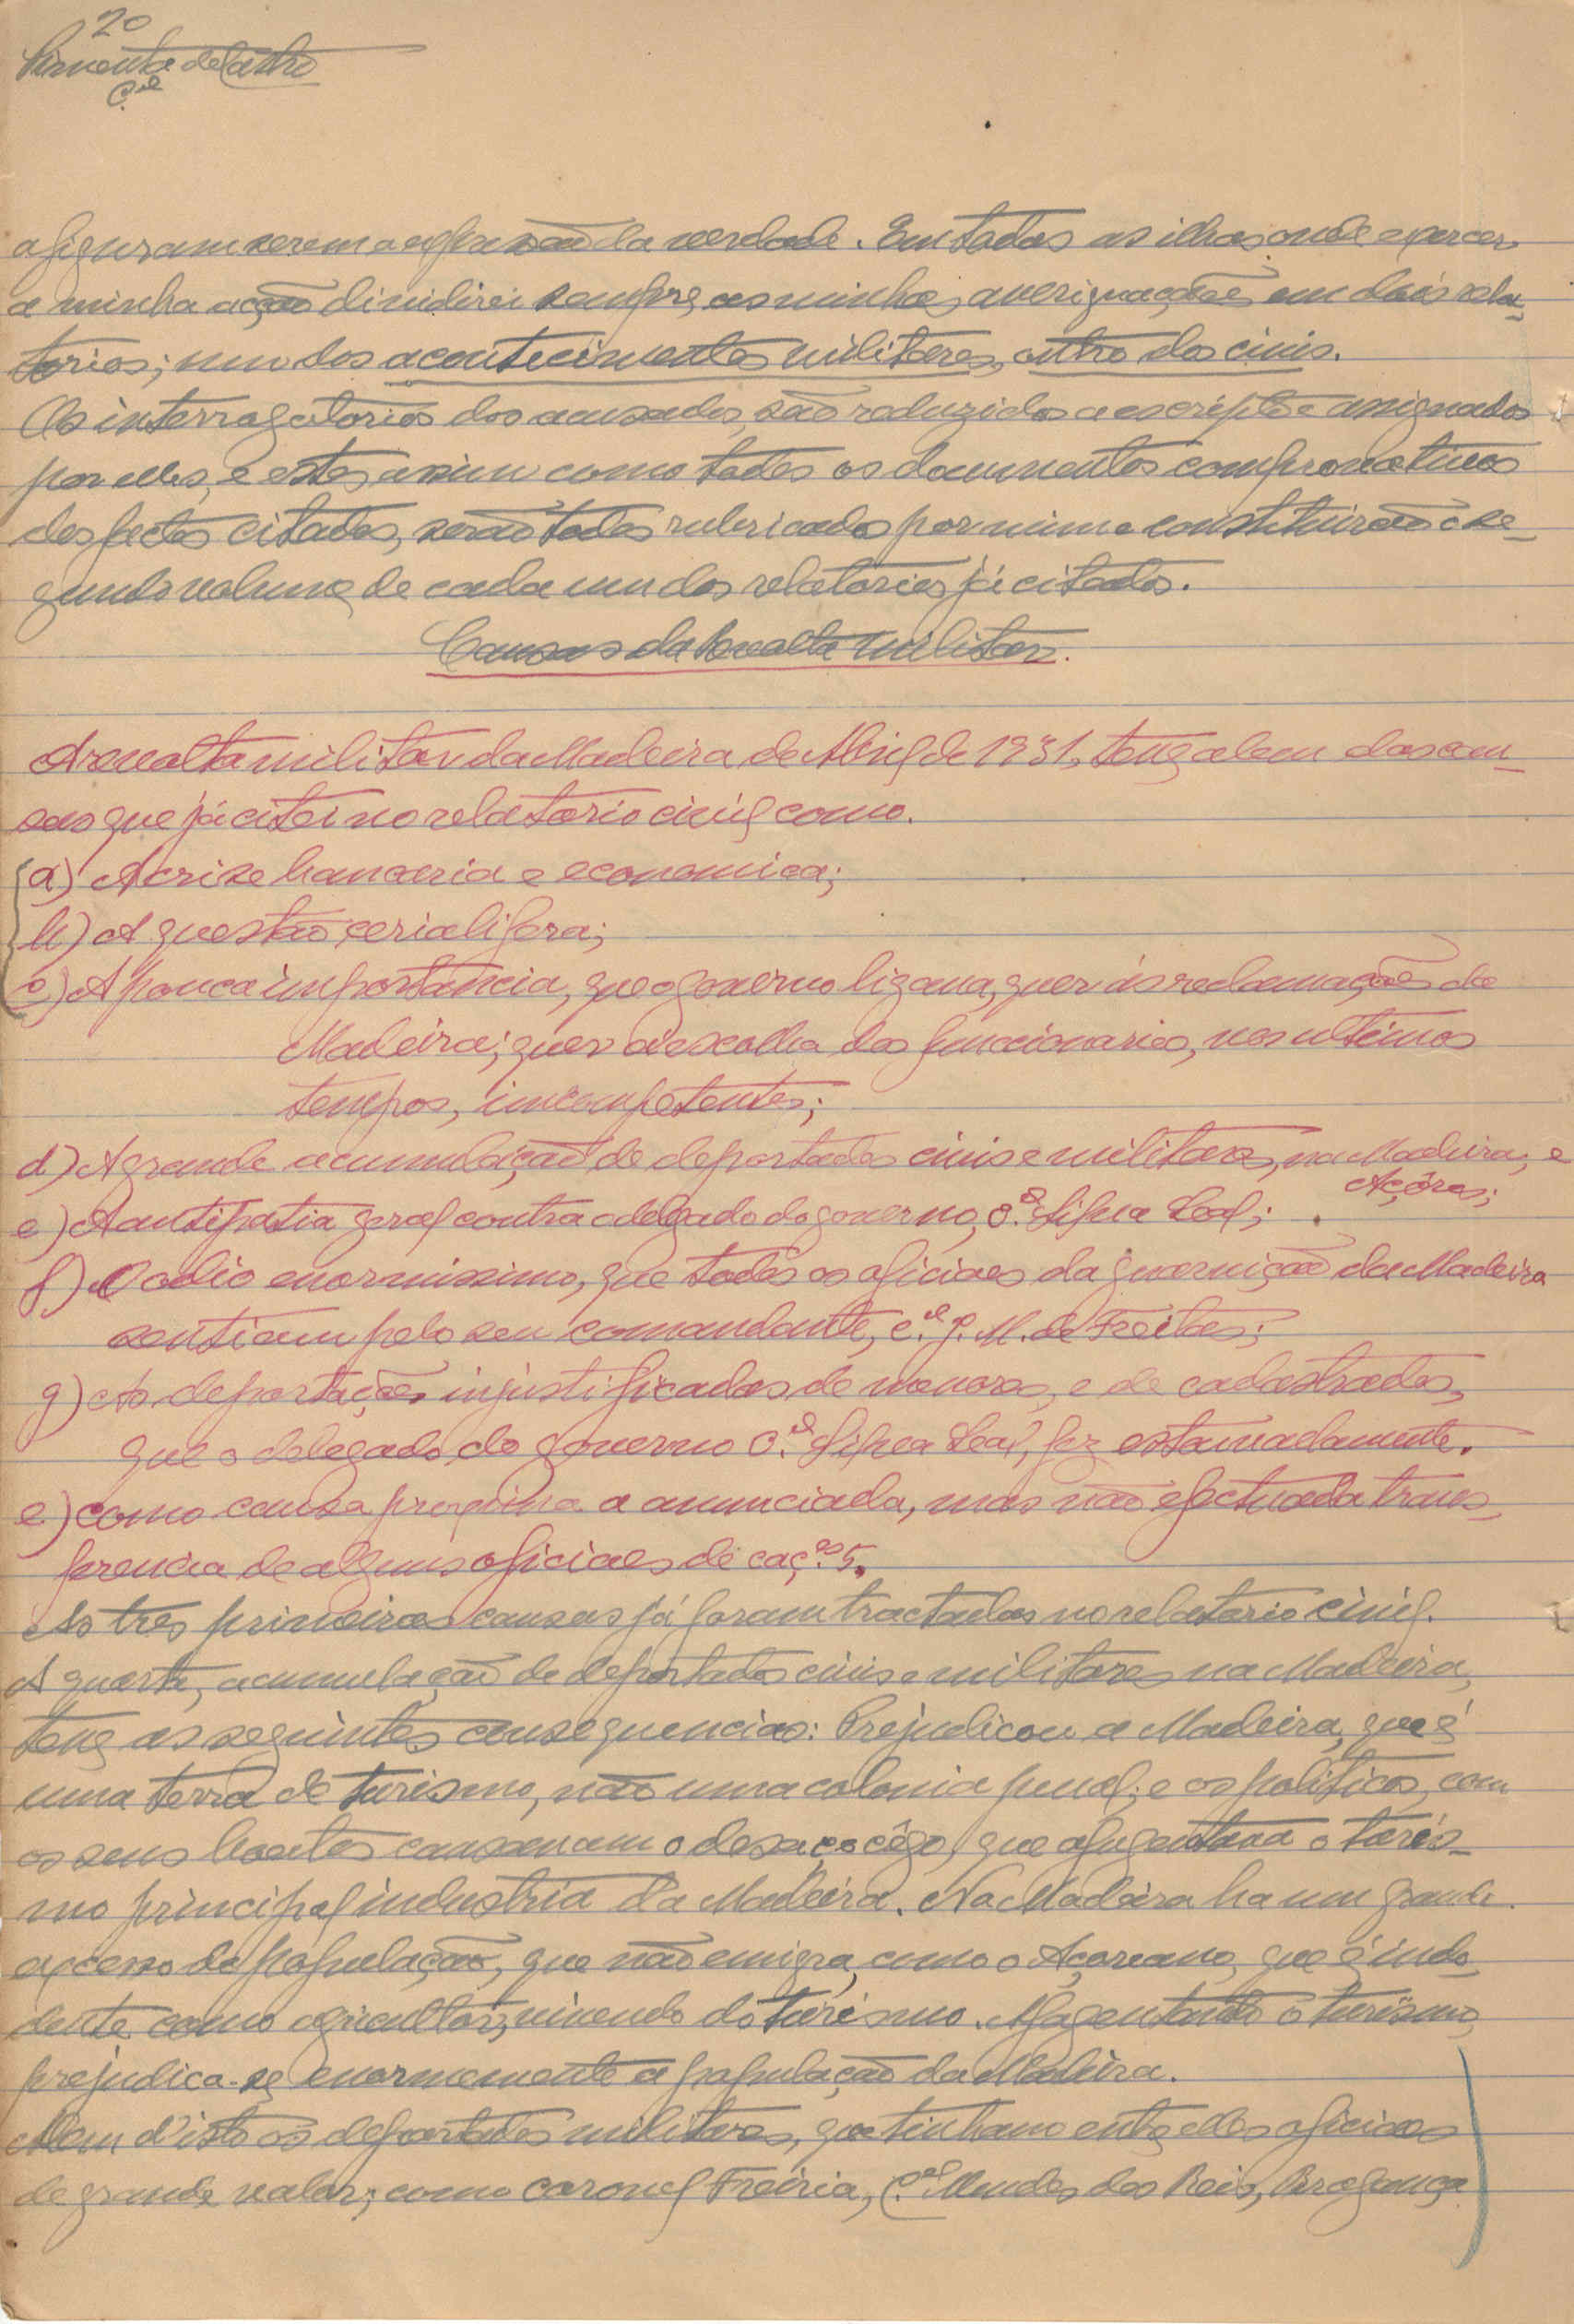 20
Pimenta de Castro
C.el
afiguram serem a expressão da verdade. Em todas as ilhas onde exercer
a minha acção dividirei sempre as minhas averiguações em dois rela-
torios; um dos acontecimentos militares, outro dos civis.
Os interrogatorios dos acusados, são reduzidos a escripto e assignados
por elles, e estes assim como todos os documentos comprovativos
dos factos citados, serão todos rubricados por mim e constituirão o se-
gundo volume de cada um dos relatorios já citados.
Causas da Revolta Militar.
A revolta militar da Madeira de Abril de 1931, teve alem das cau-
sas que já citei no relatorio civil como.
a) A crise bancaria e economica;
b) A questão cerialifera;
c) A pouca importancia, que o governo ligava, quer ás reclamações da
Madeira; quer á escolha dos funccionarios, nos ultimos
tempos, incompetentes;
d) A grande acumulação de deportados civis e militares, na Madeira, e
Açôres;
e) A antipatia geral contra o delegado do governo, C.el Silva Leal;
f) O odio enormissimo, que todos os oficiaes da guarnição da Madeira
sentiam pelo seu comandante, C.el J. M. de Freitas;
g) As deportações injustificadas de menores, e de cadastrados,
que o delegado do governo C.el Silva Leal, fez estouvadamente.
e) como causa proxima a anunciada, mas não efectuada trans-
ferencia de alguns oficiaes de caç.es 5.
As tres primeiras causas já foram tractadas no relatorio civil.
A quarta, acumulação de deportados civis e militares na Madeira,
teve as seguintes consequencias: Prejudicou a Madeira, que é
uma terra de turismo, não uma colonia penal; e os politicos, com
os seus boatos causavam o desaçocêgo, que afugentava o turis-
mo principal industria da Madeira. Na Madeira ha um grande
excesso de população, que não emigra, como o Açoreano, que é indo-
lente como agricultor, vivendo do turismo. Afugentando o turismo,
prejudica-se enormemente a população da Madeira.
Alem d'isto os deportados militares, que tinham entre elles oficiaes
de grande valor; como coronel Freiria, C.el Mendes dos Reis, Bragança